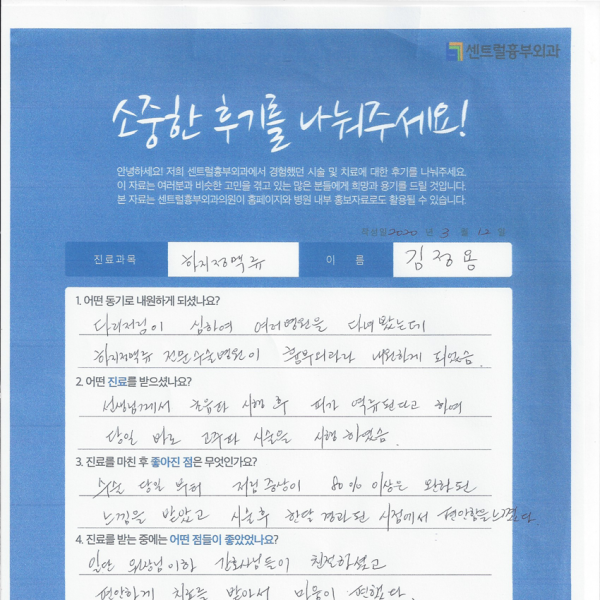 센트럴흉부외과
소중한 후기를 나눠주세요!
안녕하세요! 저희 센트럴흉부외과에서 경험했던 시술 및 치료에 대한 후기를 나눠주세요.
이 자료는 여러분과 비슷한 고민을 겪고 있는 많은 분들에게 희망과 용기를 드릴 것입니다.
본 자료는 센트럴흉부외과의원이 홈페이지와 병원 내부 홍보자료로도 활용될 수 있습니다.
작성일 2020 년 3 월 12 일
진료과목 하지정맥류 이 름 김정용
1. 어떤 동기로 내원하게 되셨나요?
다리저림이 심하여 여러병원을 다녀 봤는데
하지정맥류 전문수술병원이 흉부외과라 내원하게 되었음.
2. 어떤 진료를 받으셨나요?
선생님께서 초음파 시행 후 피가 역류된다고 하여
당일 바로 고주파 시술을 시행하였음.
3. 진료를 마친 후 좋아진 점은 무엇인가요?
수술 당일 부터 저림증상이 80% 이상은 완화된
느낌을 받았고 시술후 한달 경과된 시점에서 편안함을 느꼈다.
4. 진료를 받는 중에는 어떤 점들이 좋았었나요?
일단 원장님이하 간호사님들이 친절하셨고
편안하게 치료를 받아서 마음이 편했다.